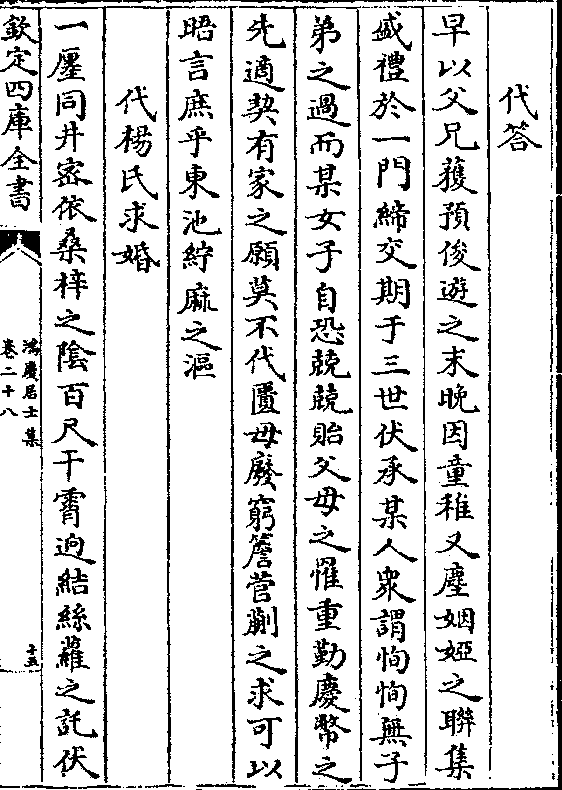 代答
早以父兄獲預俊遊之末晚因童稚又塵姻婭之聮集
盛禮於一門締交期于三世伏承某人衆謂恂恂無子
弟之過而某女子自恐兢兢貽父母之懼重勤慶幣之
先適契有家之願莫不代匱毋廢窮簷菅蒯之求可以
晤言庶乎東池紵麻之漚
代楊氏求婚
一㕓同井宻依桑梓之陰百尺干霄逈結絲蘿之託伏
欽定四庫全書
鴻慶居士集
卷二十八
十五